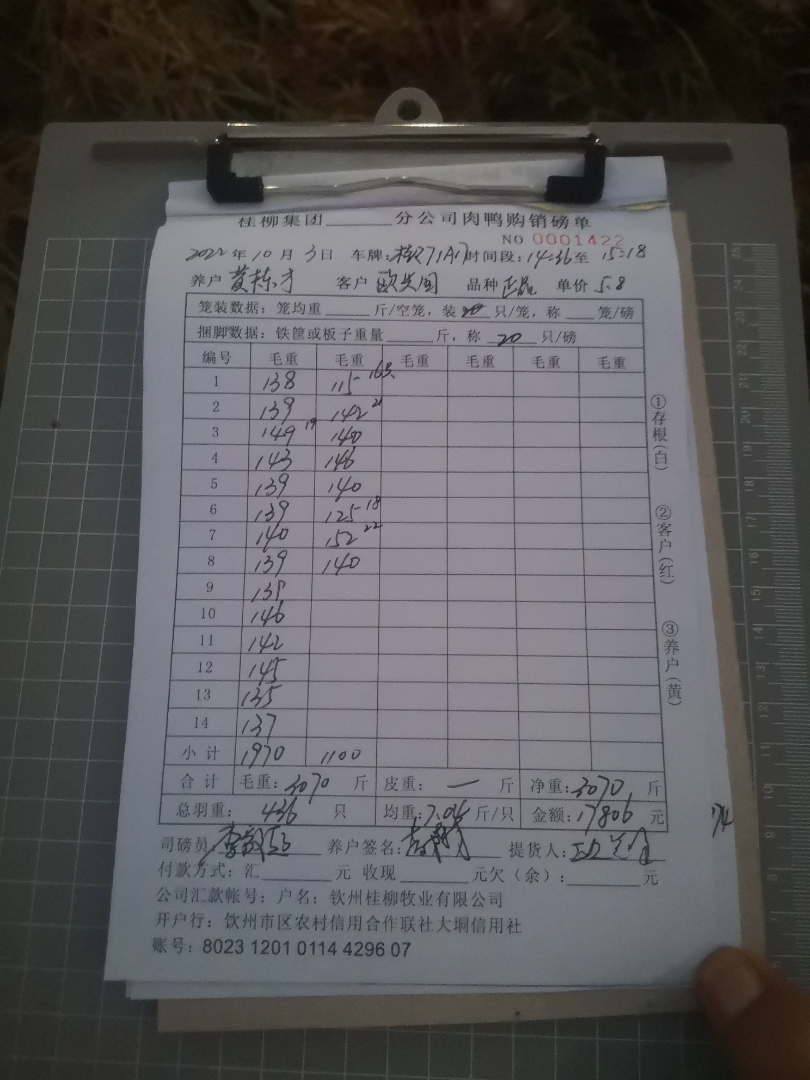 桂柳集团______分公司肉鸭购销磅单
NO 0001422
2022年10月3日 车牌: 时间段:14:36至15:18
养户 黄栋才 客户 品种 正品 单价 5.8
笼装数据:笼均重______斤/空笼,装 20 只/笼,称____笼/磅
捆脚数据:铁筐或板子重量______斤,称 20 只/磅
编号 毛重 毛重 毛重 毛重 毛重 毛重
1 138 115 16只
2 139 142 21
3 149 19 140
4 143 146
5 139 140
6 139 125 18
7 140 152 22
8 139 140
9 139
10 146
11 142
12 145
13 135
14 137
小计 1970 1100
合计 毛重:3070 斤 皮重: — 斤 净重:3070 斤
总羽重: 436 只 均重:7.04 斤/只 金额:17806 元
174
司磅员: 养户签名: 提货人:
付款方式:汇______元 收现______元欠(余):______元
公司汇款帐号:户名:钦州桂柳牧业有限公司
开户行:钦州市区农村信用合作联社大垌信用社
账号:8023 1201 0114 4296 07
①存根(白)
②客户(红)
③养户(黄)